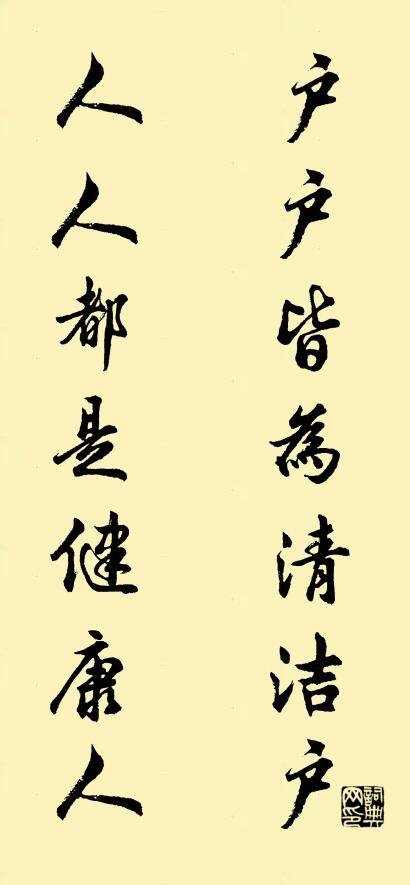 户户皆為清洁户
人人都是健康人
詞典网印